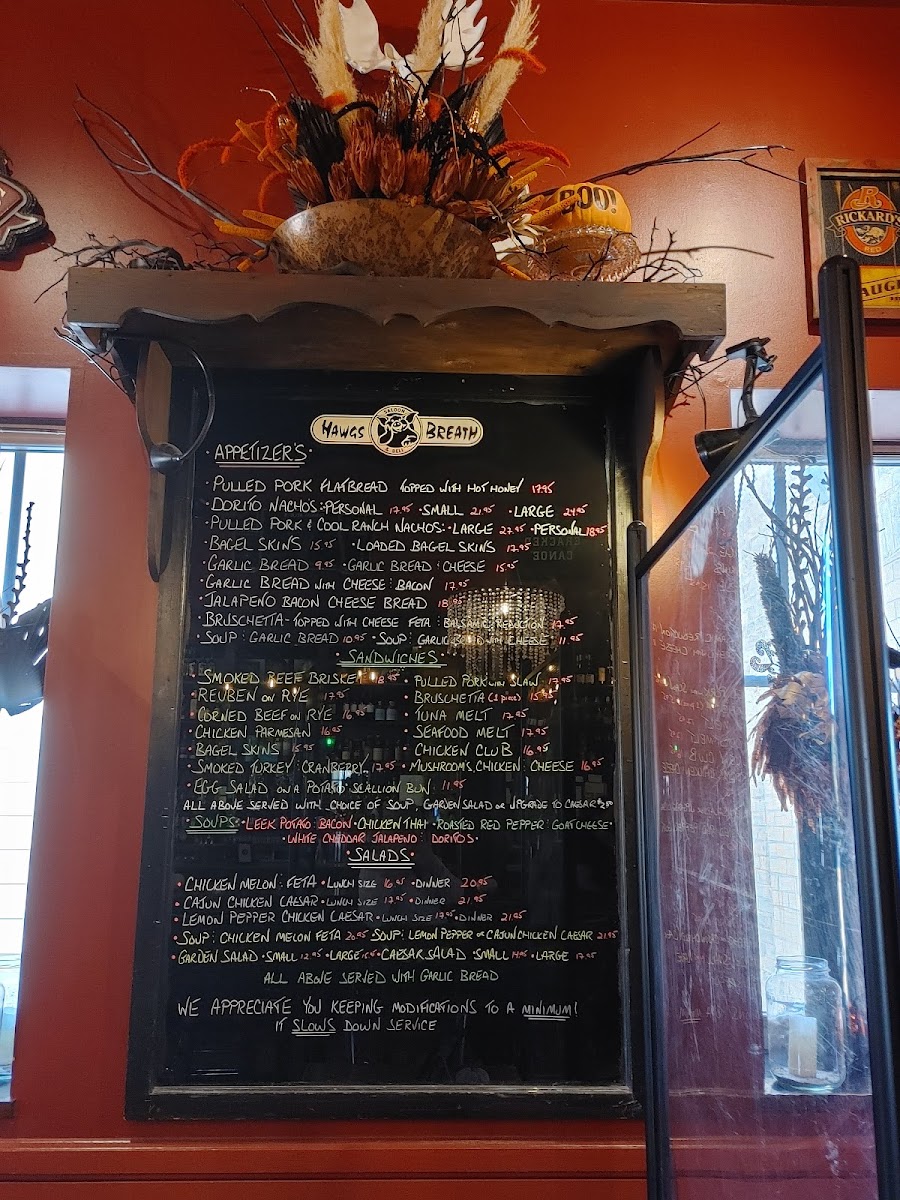 BOO!
RICKARD'S
RED
SALOON
HAWGS BREATH
& DELI
· APPETIZER'S ·
· PULLED PORK FLATBREAD TOPPED WITH HOT HONEY 17.95
· DORITO NACHO'S: PERSONAL 17.95 · SMALL 21.95 · LARGE 24.95
· PULLED PORK & COOL RANCH NACHOS: · LARGE 27.95 · PERSONAL 18.95
· BAGEL SKINS 15.95 · LOADED BAGEL SKINS 17.95
· GARLIC BREAD 9.95 · GARLIC BREAD : CHEESE 15.95
· GARLIC BREAD WITH CHEESE : BACON 17.95
· JALAPENO BACON CHEESE BREAD 18.95
· BRUSCHETTA - TOPPED WITH CHEESE FETA : BALSAMIC REDUCTION 17.95
· SOUP : GARLIC BREAD 10.95 · SOUP : GARLIC BREAD WITH CHEESE 11.95
· SANDWICHES ·
· SMOKED BEEF BRISKET 18.95 · PULLED PORK WITH SLAW 17.95
· REUBEN ON RYE 17.95 · BRUSCHETTA (2 piece) 15.95
· CORNED BEEF ON RYE 16.95 · TUNA MELT 17.95
· CHICKEN PARMESAN 16.95 · SEAFOOD MELT 17.95
· BAGEL SKINS 15.95 · CHICKEN CLUB 16.95
· SMOKED TURKEY : CRANBERRY 17.95 · MUSHROOMS, CHICKEN : CHEESE 16.95
· EGG SALAD ON A POTATO SCALLION BUN 11.95
ALL ABOVE SERVED WITH CHOICE OF SOUP, GARDEN SALAD OR UPGRADE TO CAESAR
· SOUPS · LEEK POTATO BACON · CHICKEN THAI · ROASTED RED PEPPER : GOAT CHEESE ·
· WHITE CHEDDAR JALAPENO : DORITOS ·
· SALADS ·
· CHICKEN MELON : FETA · LUNCH SIZE 16.95 · DINNER 20.95
· CAJUN CHICKEN CAESAR · LUNCH SIZE 17.95 · DINNER 21.95
· LEMON PEPPER CHICKEN CAESAR · LUNCH SIZE 17.95 · DINNER 21.95
· SOUP : CHICKEN MELON FETA 20.95 · SOUP : LEMON PEPPER OR CAJUN CHICKEN CAESAR 21.95
· GARDEN SALAD · SMALL 12.95 · LARGE · CAESAR SALAD · SMALL 14.95 · LARGE 17.95
ALL ABOVE SERVED WITH GARLIC BREAD
WE APPRECIATE YOU KEEPING MODIFICATIONS TO A MINIMUM!
IT SLOWS DOWN SERVICE